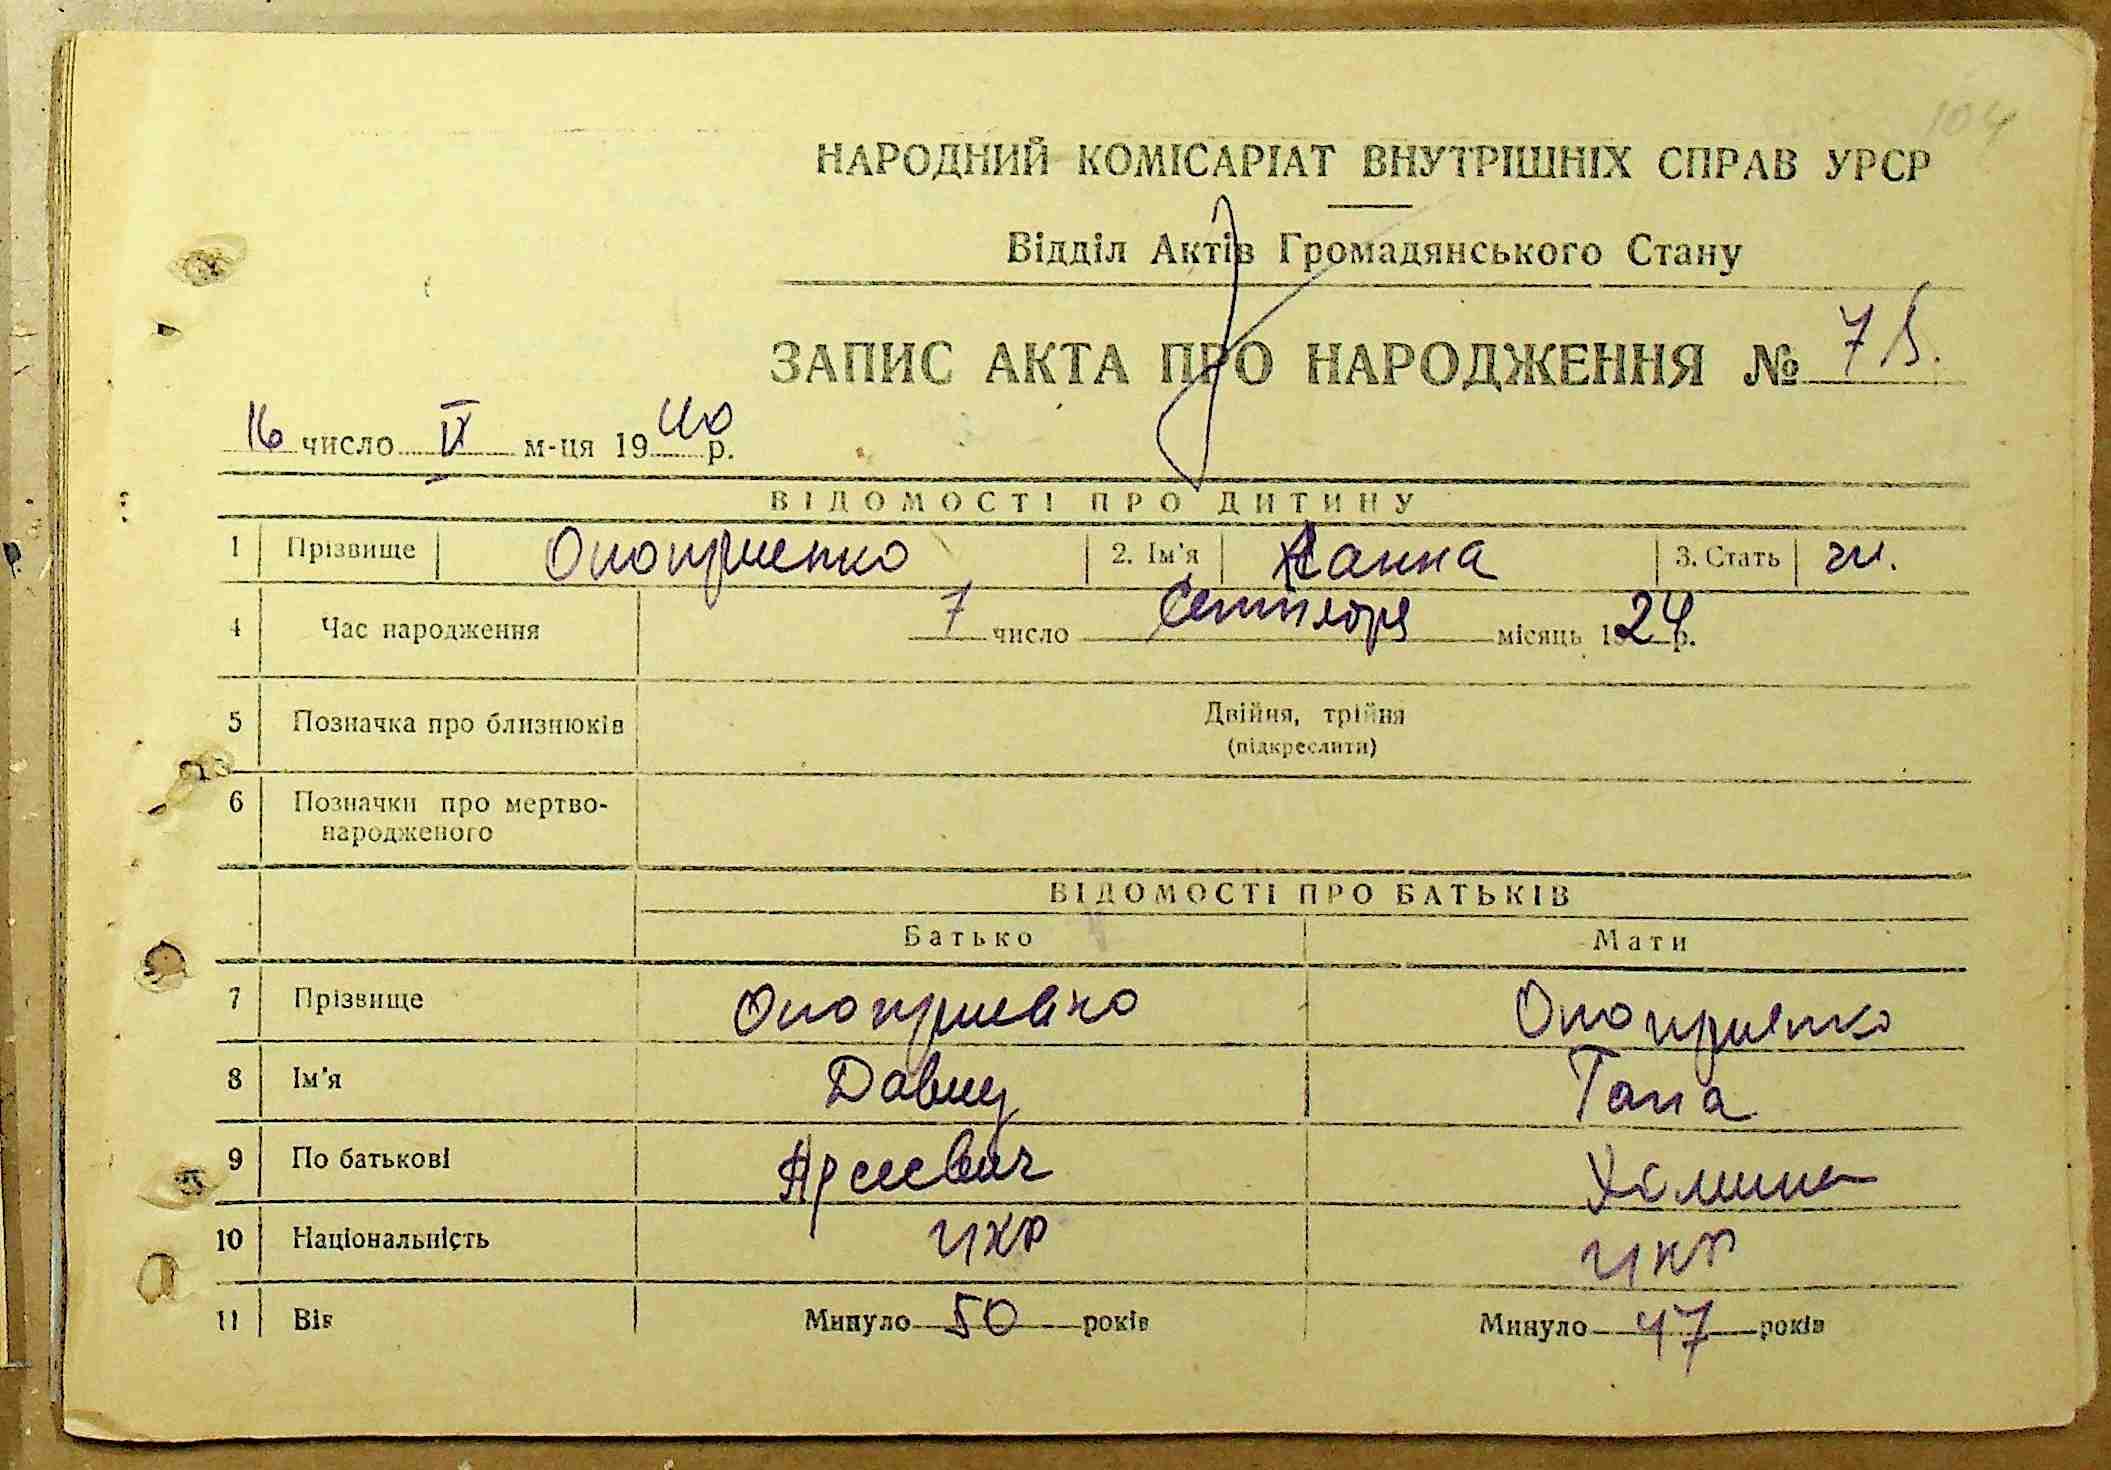 104
НАРОДНИЙ КОМІСАРІАТ ВНУТРІШНІХ СПРАВ УРСР
Відділ Актів Громадянського Стану
ЗАПИС АКТА ПРО НАРОДЖЕННЯ № 75.
16 число IX м-ця 1940 р.
ВІДОМОСТІ ПРО ДИТИНУ
1 Прізвище Оноприенко 2. Ім'я Ганна 3. Стать ж.
4 Час народження 7 число Сентября місяць 1924 р.
5 Позначка про близнюків Двійня, трійня
(підкреслити)
6 Позначки про мертво-
народженого
ВІДОМОСТІ ПРО БАТЬКІВ
Батько Мати
7 Прізвище Оноприенко Оноприенко
8 Ім'я Давид
9 По батькові
10 Національність укр укр
11 Вік Минуло 50 років Минуло 47 років